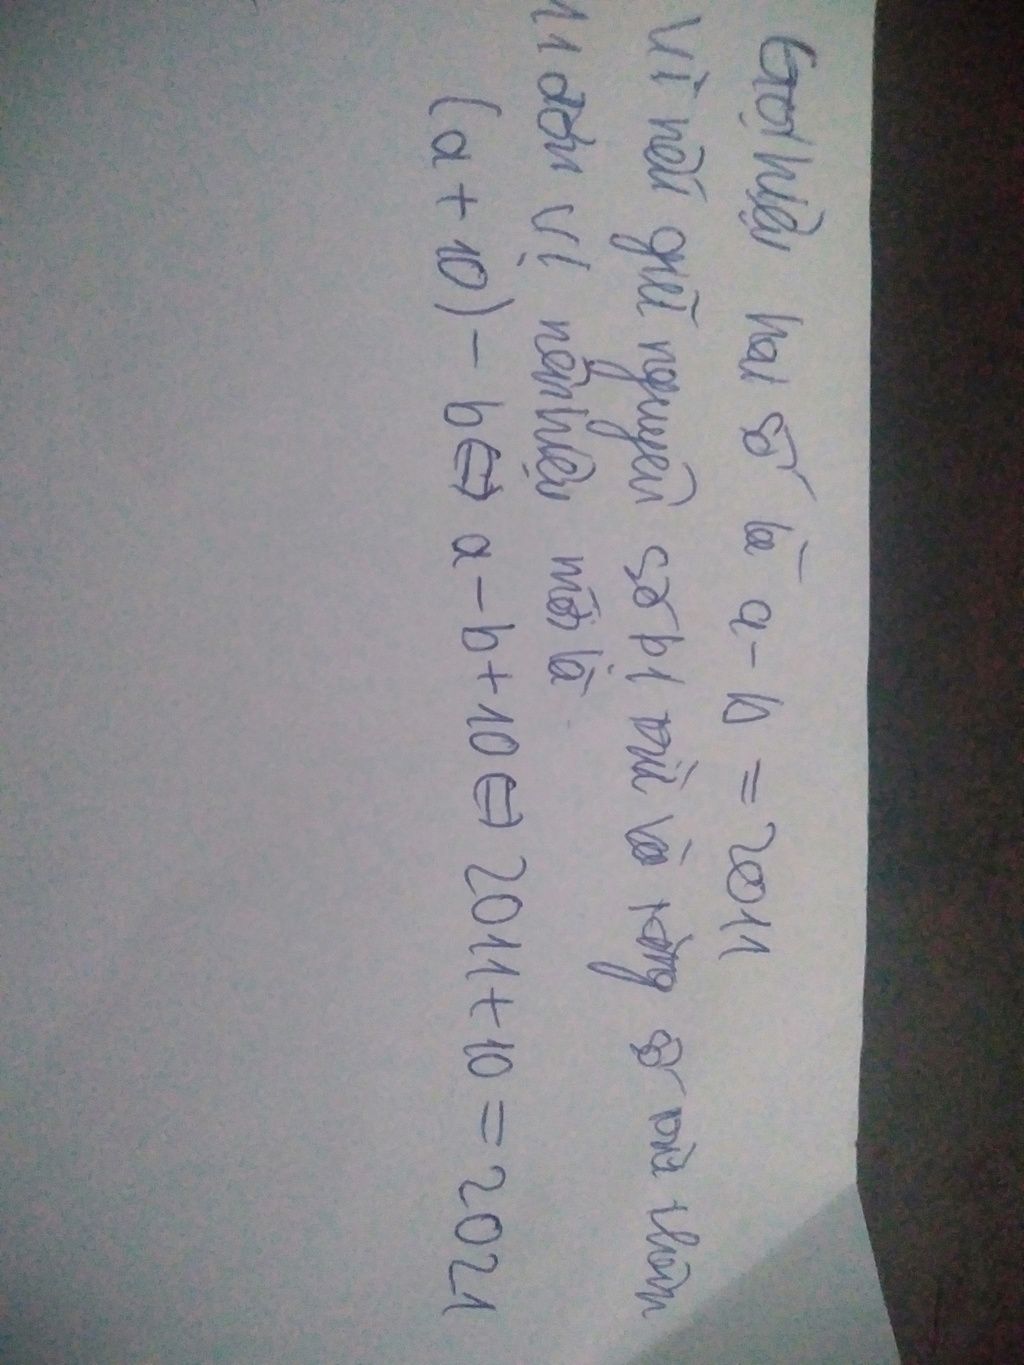 Gọi hiệu hai số là a - b = 2011
Vì nếu giữ nguyên số bị trừ và tăng số trừ thêm
11 đơn vị nên hiệu mới là
(a + 10) - b ⇔ a - b + 10 ⇔ 2011 + 10 = 2021